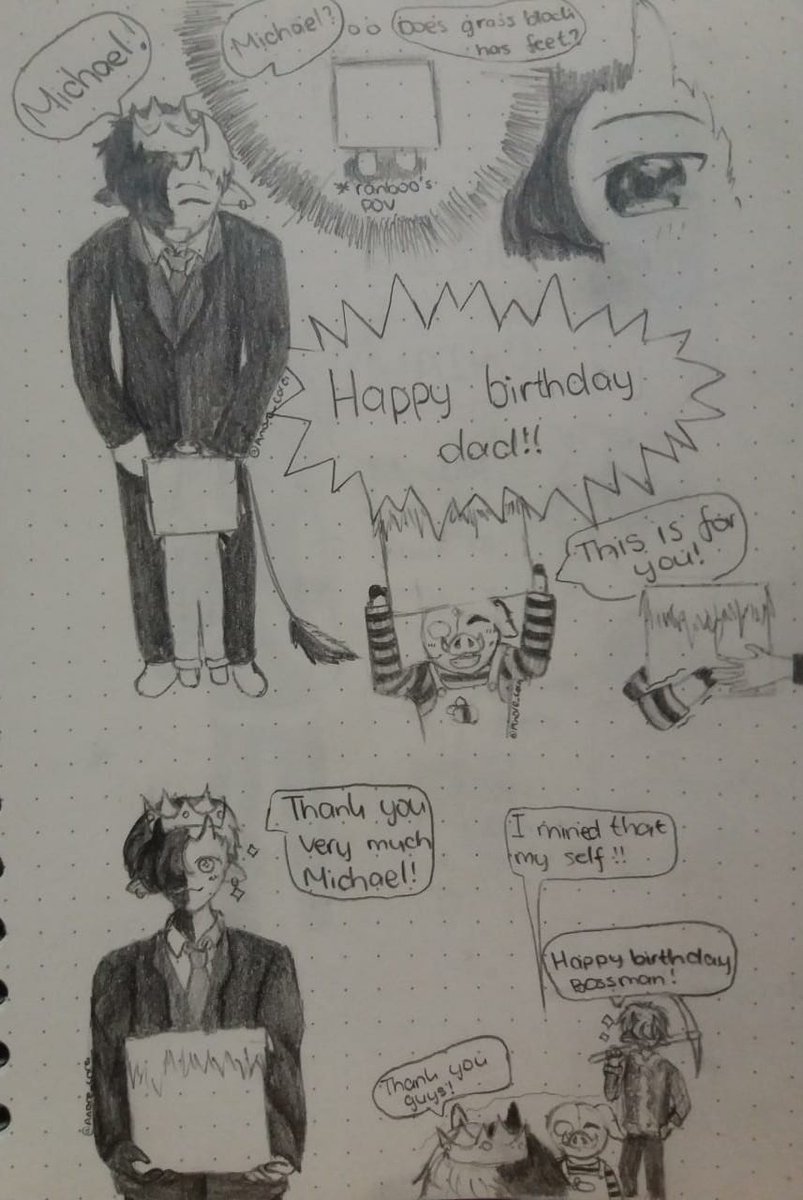 Michael!
Michael?
Does grass block
has feet?
*ranboo's
POV
Happy birthday
dad!!
This is for
you!
Thank you
very much
Michael!
I mined that
my self!!
Happy birthday
Bossman!
Thank you
guys!